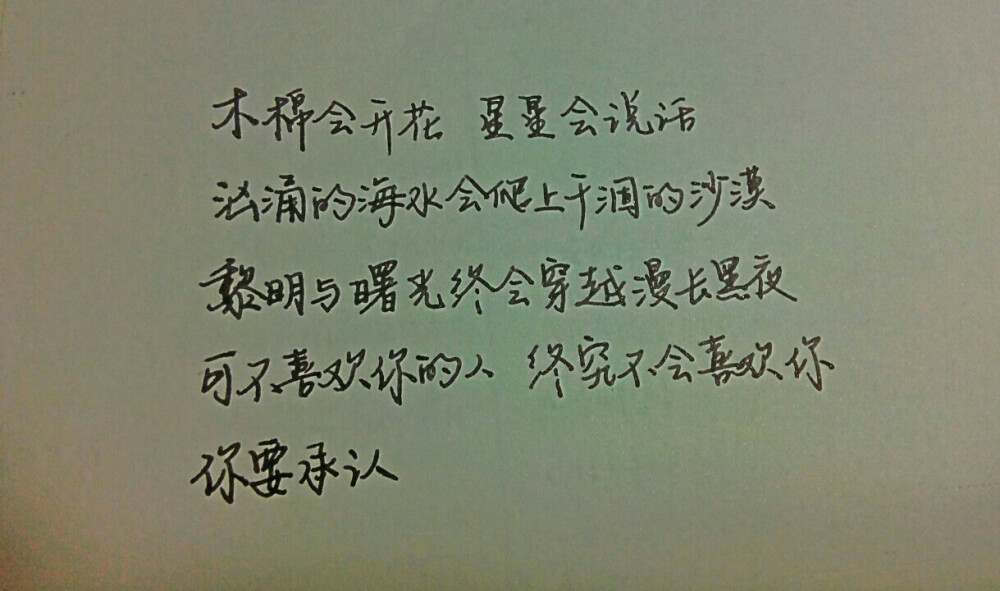 木棉会开花 星星会说话
汹涌的海水会爬上干涸的沙漠
黎明与曙光终会穿越漫长黑夜
可不喜欢你的人 终究不会喜欢你
你要承认